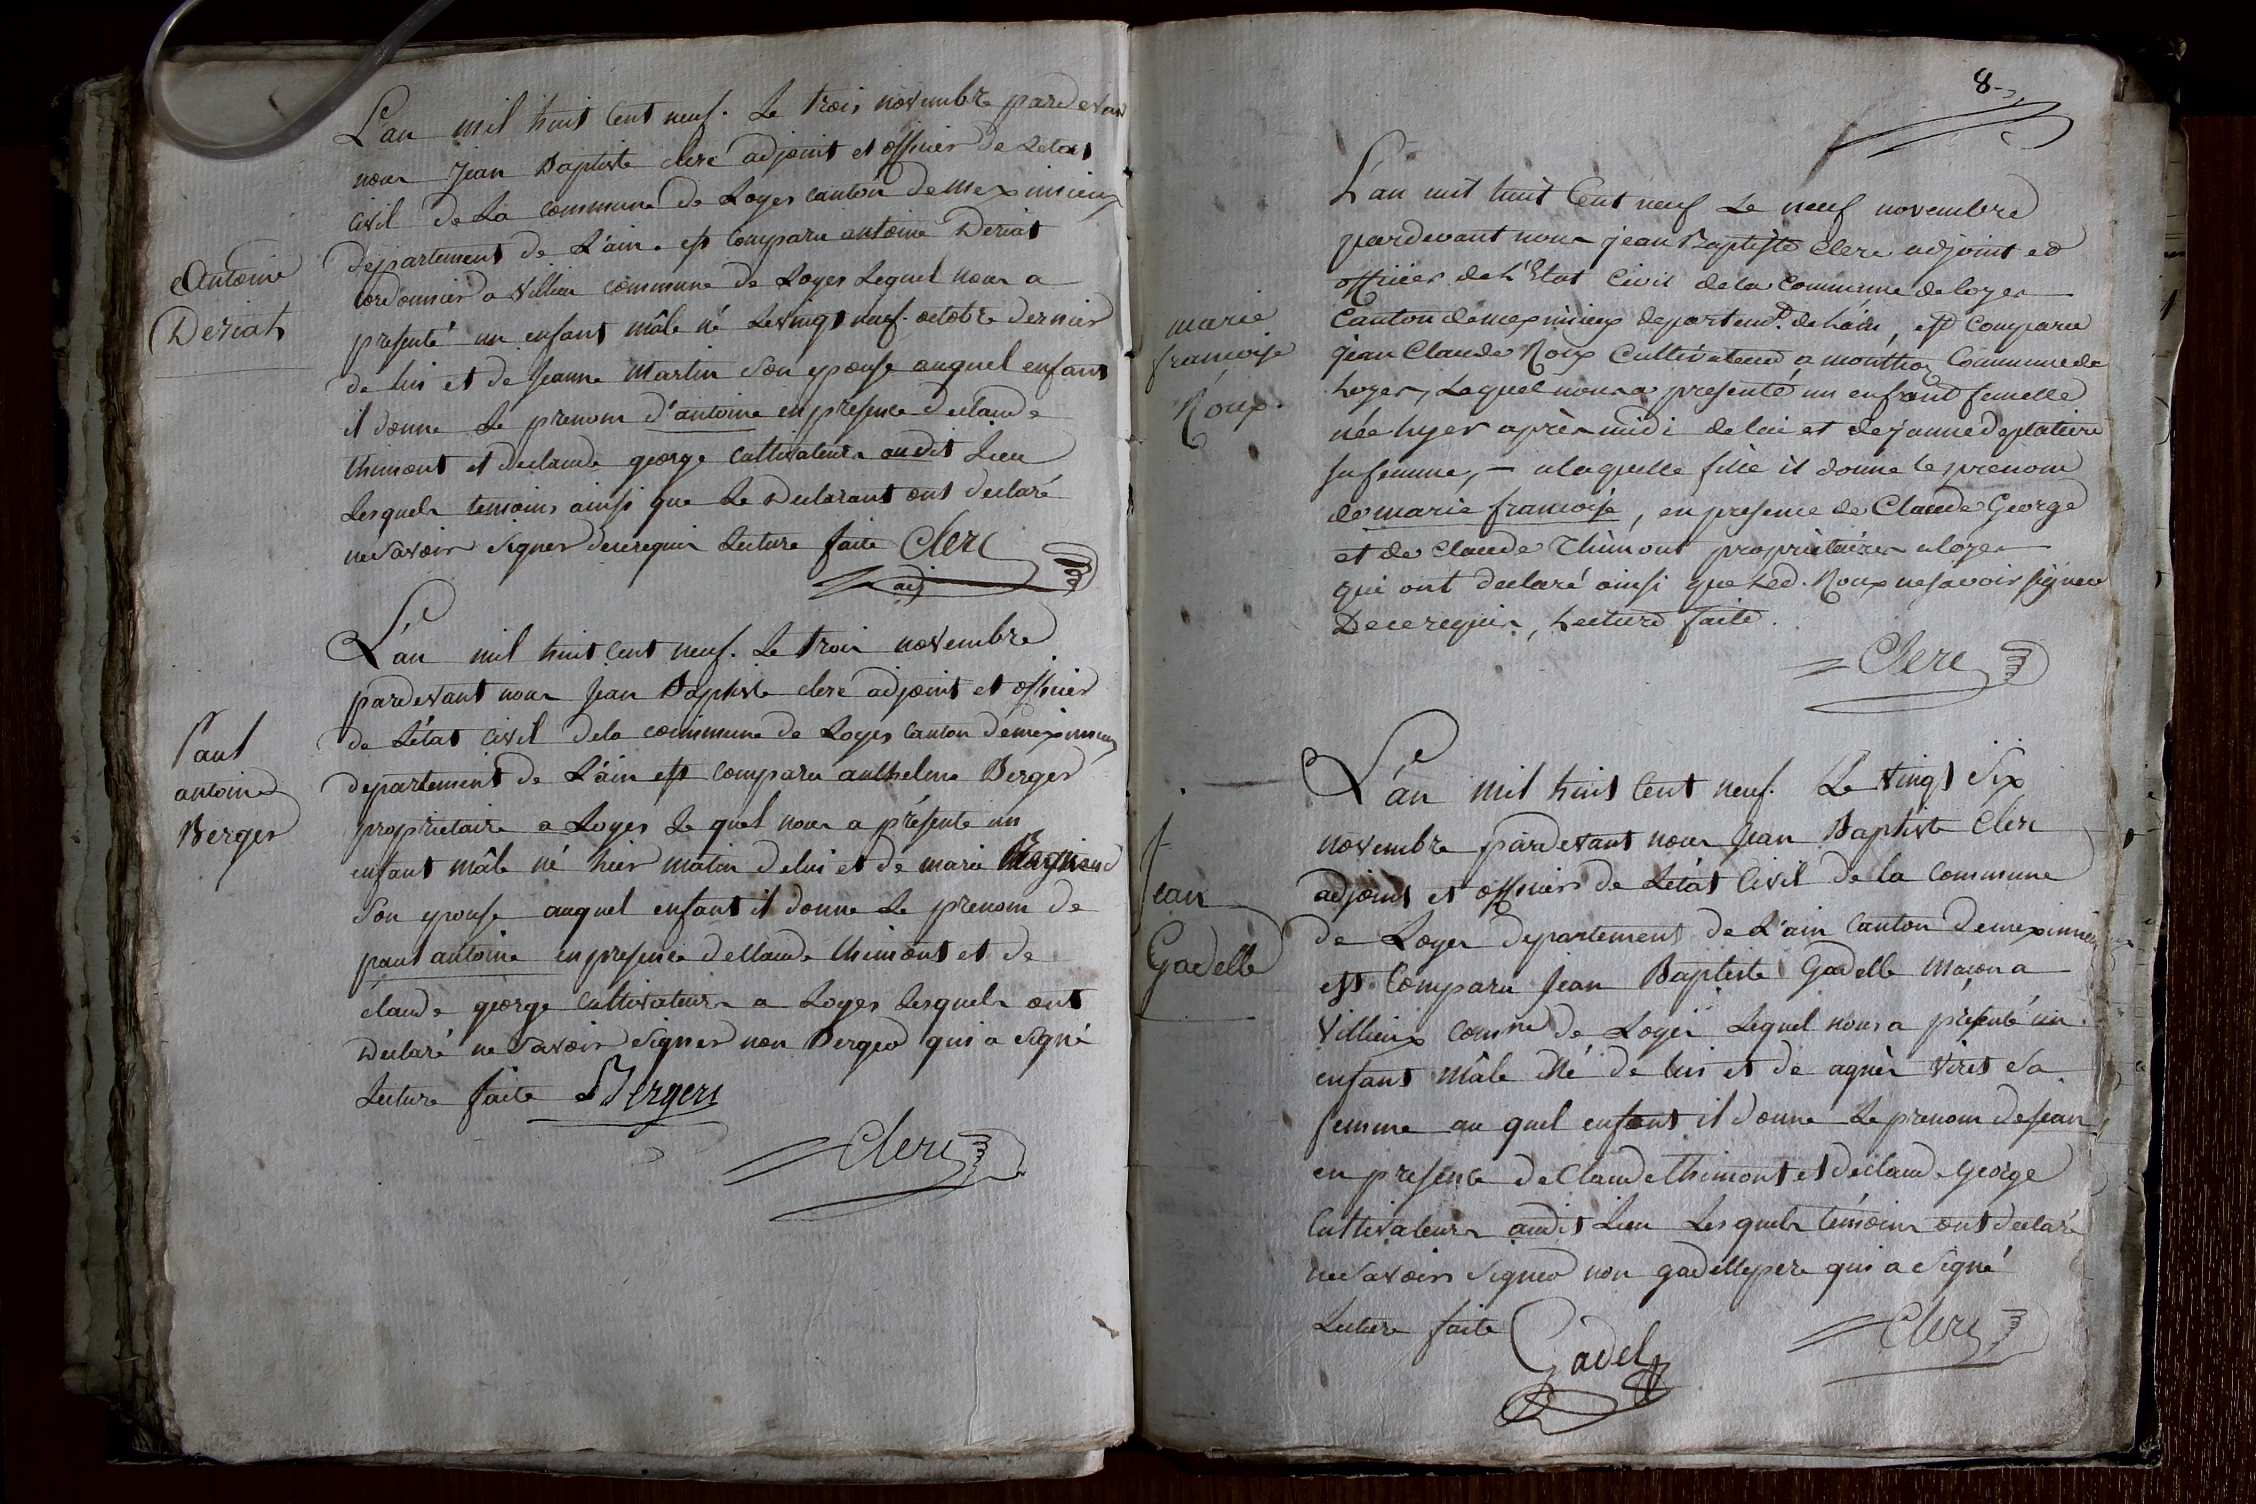 Antoine
Deriat
L'an mil huit Cent neuf. Le trois novembre pardevant
nous Jean Baptiste clerc adjoint et officier de Letat
Civil de La commune de Loyes canton de meximieux
département de L'ain. est Comparu antoine Deriat
Cordonnier a Villieu commune de Loyes Lequel nous a
presenté un enfant mâle né Levingt neuf. octobre dernier
de lui et de Jeanne Martin Son epouse auquel enfant
il donne Le prenom d'antoine en presence declaude
thimont et declaude george Cultivateurs audit Lieu
Lesquels temoins ainsi que Le Declarant ont declaré
ne Savoir Signer dece requis Lecture faite Clerc
adj
Paul
antoine
Berger
L'an mil huit Cent neuf. Le trois novembre
pardevant nous Jean Baptiste clerc adjoint et officier
de Létat Civil dela commune de Loyes Canton demeximieux
departement de L'ain est comparu anthelme Berger
proprietaire a Loyes Le quel nous a présenté un
enfant mâle né hier matin delui et de marie
Son epouse auquel enfant il donne Le prenom de
paul antoine en presence declaude thimont et de
claude george Cultivateurs a Loyes Lesquels ont
Declaré ne Savoir Signer non Berger qui a Signé
Lecture faite Bergers
Clerc
8
marie
francoise
Roux.
L'an mil huit Cent neuf Le neuf novembre
pardevant nous jean Baptiste Clerc adjoint et
officier de L'Etat Civil dela Commune deloyes
Canton demeximieux departemt. de Lain, est Comparu
jean Claude Roux Cultivateur a monthoz Commune de
Loyes, Lequel nous a presenté un enfant femelle
née hyer après midi delui et de jeanne deplatiere
sa femme, — alaquelle fille il donne le prenom
de marie francoise, en presence de Claude George
et de Claude Thimont proprietaires a loyes
qui ont declaré ainsi que Led. Roux ne savoir signer
Dece requis, Lecture faite.
Clerc
Jean
Gadelle
L'an mil huit Cent neuf. Le Vingt Six
novembre pardevant nous Jean Baptiste Clerc
adjoint et officier de Létat Civil de la Commune
de Loyes departement de L'ain Canton demeximieux
est Comparu Jean Baptiste Gadelle Macon a
Villieux comne de Loyes Lequel nous a présenté un
enfant mâle né de lui et de agnès Viret Sa
femme au quel enfant il donne Le prenom de jean
en presence de Claude thimont et declaude George
Cultivateurs audit Lieu Lesquels témoins ont declaré
ne Savoir Signer non gadelle pere qui a Signé
Lecture faite
Gadel
Clerc